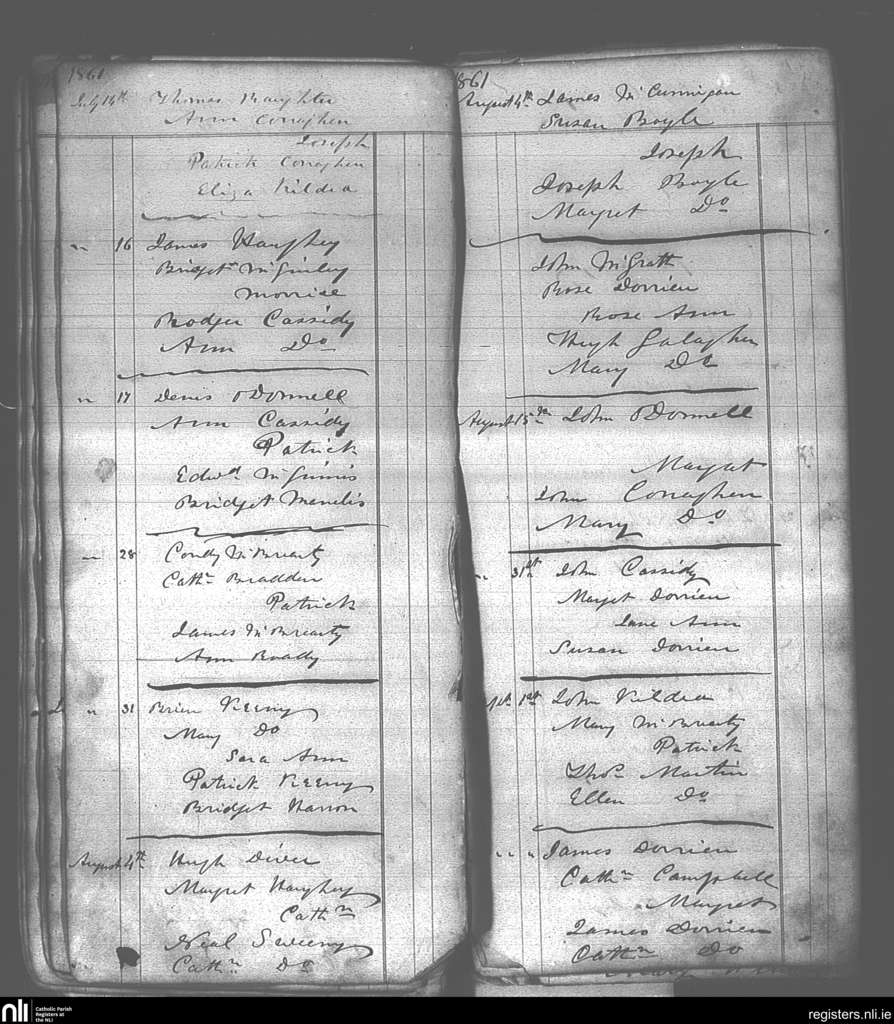 1861
July 14th Thomas Haughter
Ann Conaghen
Joseph
Patrick Conaghen
Eliza Kildea
" 16 James Haughey
Bridget McGinley
Morrise
Rodger Cassidy
Ann Do
" 17 Denis ODonnell
Ann Cassidy
Patrick
Edwd McGinnis
Bridget Menelis
" 28 Condy McBrearty
Cathn Bradden
Patrick
James McBrearty
Ann Brady
" 31 Brien Keeny
Mary Do
Sara Ann
Patrick Keeny
Bridget Harron
August 4th Hugh Diver
Mayret Haughey
Cathn
Neal Sweeny
Cathn Do
1861
August 4th James McCunnigan
Susan Boyle
Joseph
Joseph Boyle
Mayret Do
John McGrath
Rose Dorrien
Rose Ann
Hugh Galagher
Mary Do
August 15th John ODonnell
Mayat
John Conaghen
Mary Do
" 31st John Cassidy
Mayet Dorrien
Jane Ann
Susan Dorrien
1st John Kildea
Mary McBrearty
Patrick
Thos Martin
Ellen Do
" " " James Dorrien
Cathn Campbell
Mayret
James Dorrien
Cathn Do
nli Catholic Parish
Registers at
the NLI
registers.nli.ie